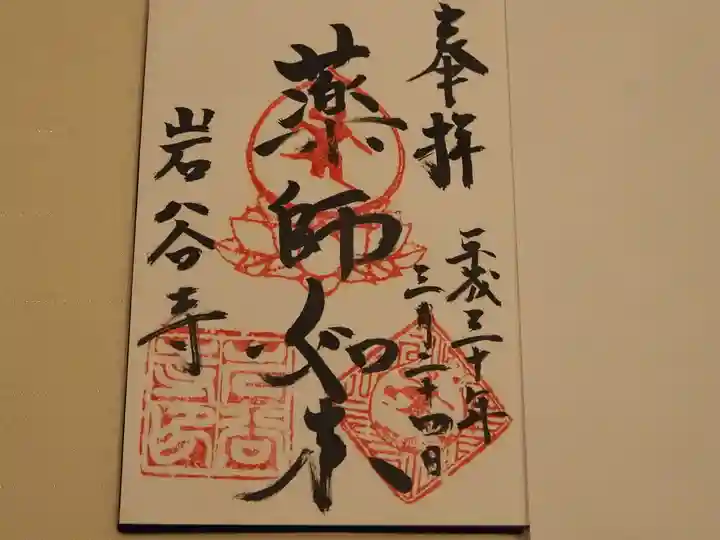 奉拝
平成三十年
三月二十四日
薬師如来
岩谷寺